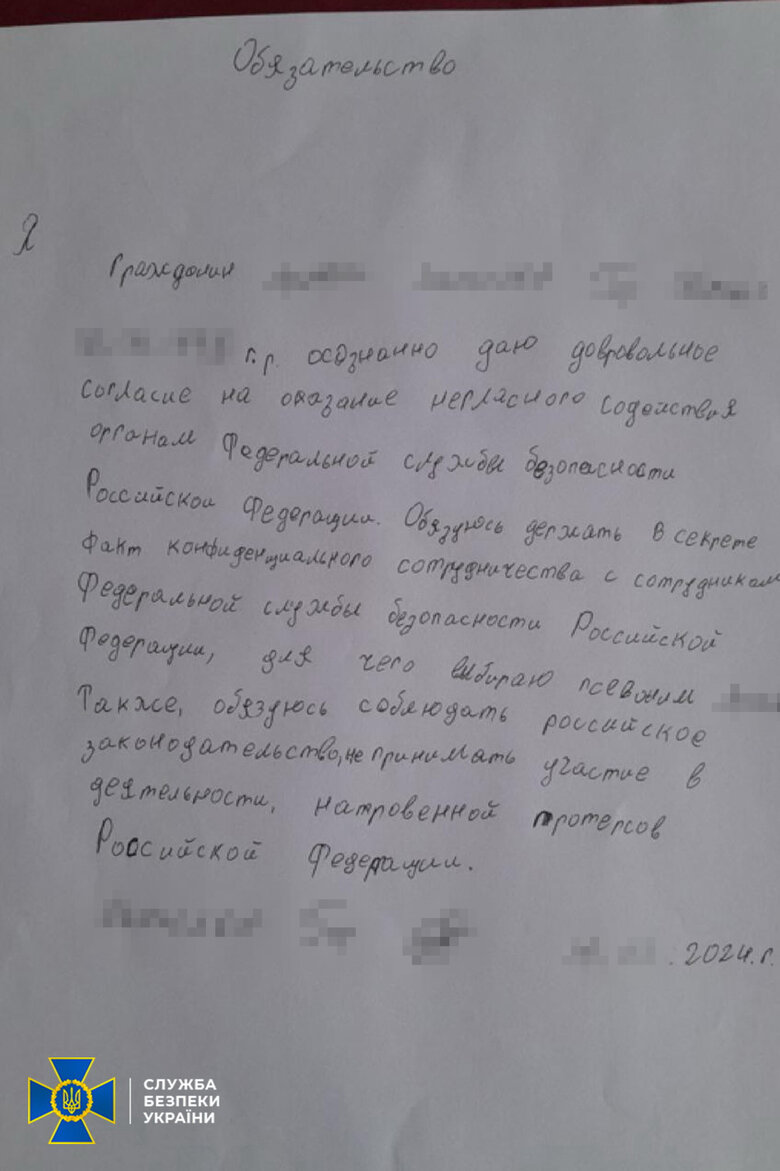 Обязательство
Я
Граждолин
г.р. осознанно даю добровольное
согласие на оказание негласного содействия
органам Федеральной службы безопасности
Российской Федерации. Обязуюсь держать в секрете
факт конфиденциального сотрудничества с сотрудникам
Федеральной службы безопасности Российской
Федерации, для чего выбираю псевоним
Также, обязуюсь соблюдать российское
законодательство, не принимать участие в
деятельности, натровенной протерсов
Российской Федерации.
2024.г.
СЛУЖБА
БЕЗПЕКИ
УКРАЇНИ